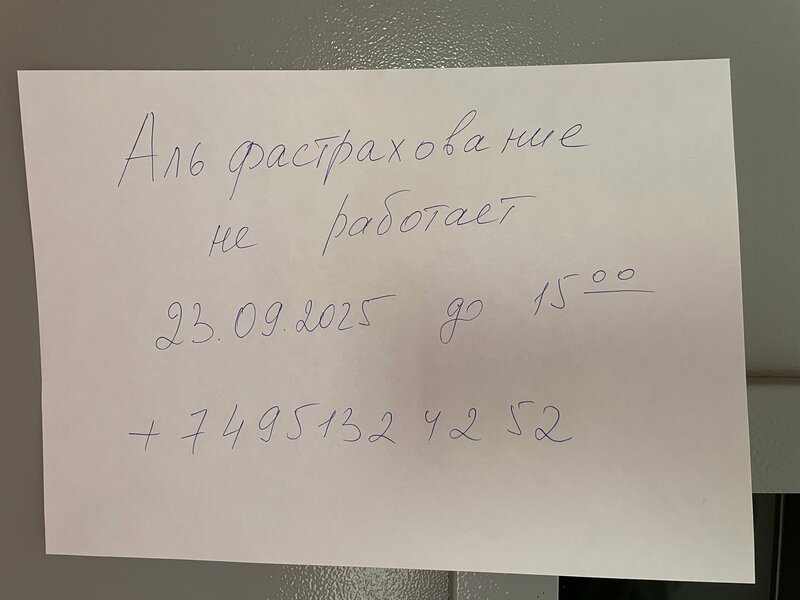 Альфастрахование
не работает
23.09.2025 до 15⁰⁰
+ 7495132 42 52